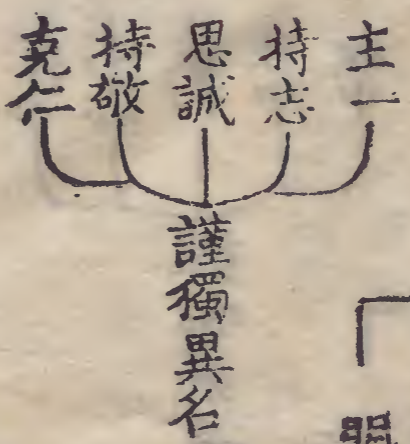 主一
持志
思誠
持敬
克仁
謹獨異名